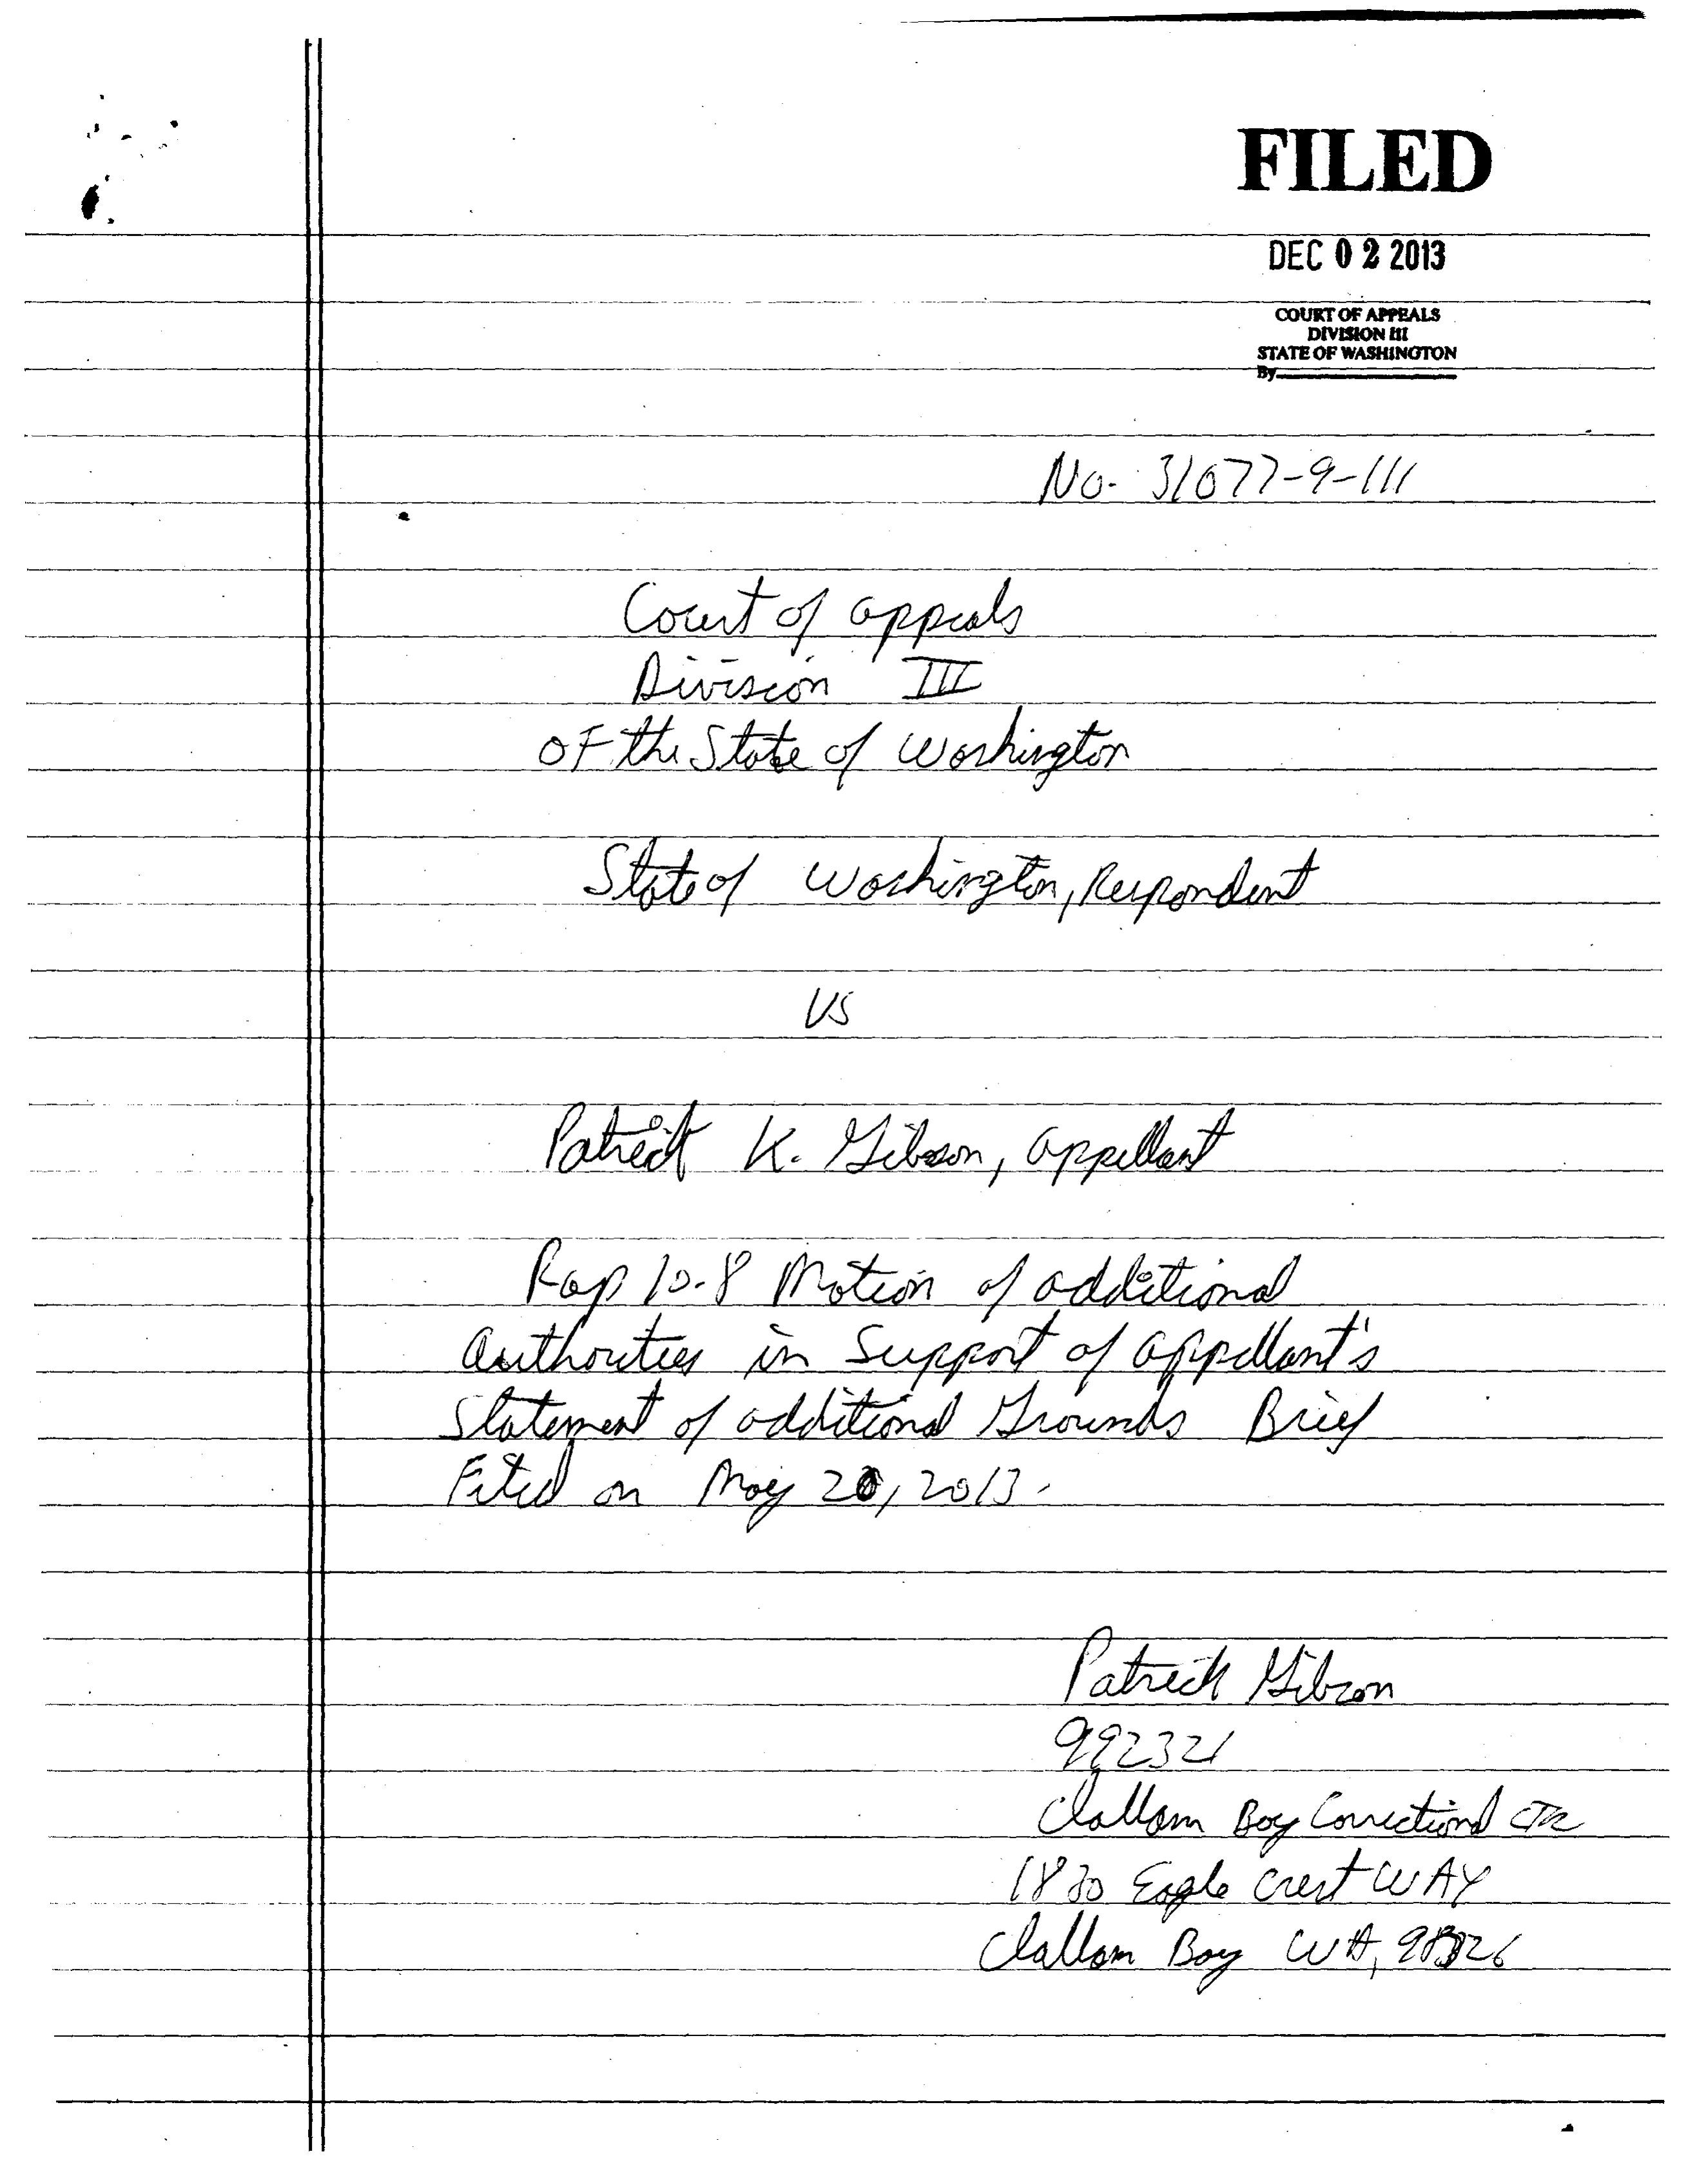 FILED
DEC 02 2013
COURT OF APPEALS
DIVISION III
STATE OF WASHINGTON
By
No. 31077-9-111
Court of appeals
Division III
OF the State of Washington
State of Washington, Respondent
VS
Patrick K. Gibson, appellant
Rap 10.8 Motion of additional
authorities in Support of appellant's
Statement of additional Grounds Brief
Filed on May 20, 2013.
Patrick Gibson
992321
Clallam Bay Correctional CTR
1830 Eagle Crest WAY
Clallam Bay WA, 98326